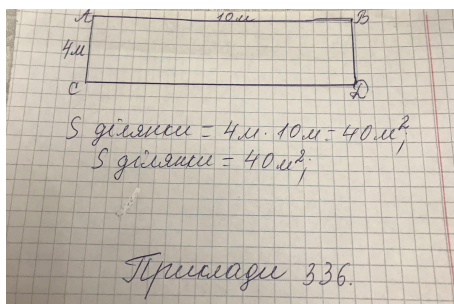 A 10м B
4м
C D
S ділянки = 4м · 10м = 40м²;
S ділянки = 40м²;
Приклади 336.